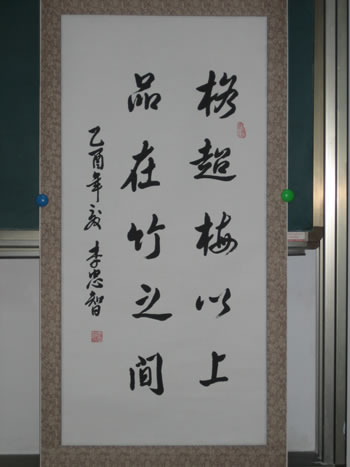 格超梅以上
品在竹之间
乙酉年夏 李忠智